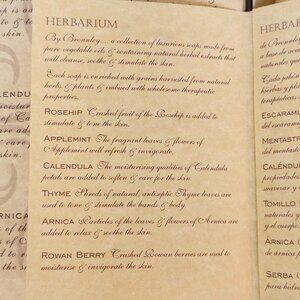 HERBARIUM
By Bronnley.... a collection of luxurious soaps made from
pure vegetable oils & containing natural herbal extracts that
will cleanse, soothe & stimulate the skin.
Each soap is enriched with grains harvested from natural
herbs & plants & infused with wholesome therapeutic
properties.
ROSEHIP Crushed fruit of the Rosehip is added to
stimulate & tone the skin.
APPLEMINT The fragrant leaves & flowers of
Applemint will refresh & invigorate.
CALENDULA The moisturising qualities of Calendula
petals are added to soften & care for the skin.
THYME Shreds of natural, antiseptic Thyme leaves are
used to tone & stimulate the hands & body.
ARNICA Particles of the leaves & flowers of Arnica are
added to relax & soothe the skin.
ROWAN BERRY Crushed Rowan berries are used to
moisturise & invigorate the skin.
HERBAR
de Bronnley
a base de
Cada jabón
hierbas y plan
terapéuticas
ESCARAM
del escaramu
MENTAST
del mentastro
CALÉNDU
suavizar y
TOMILLO
naturales
y el cuerpo
ÁRNICA
de árnica
SERBA
para hidra